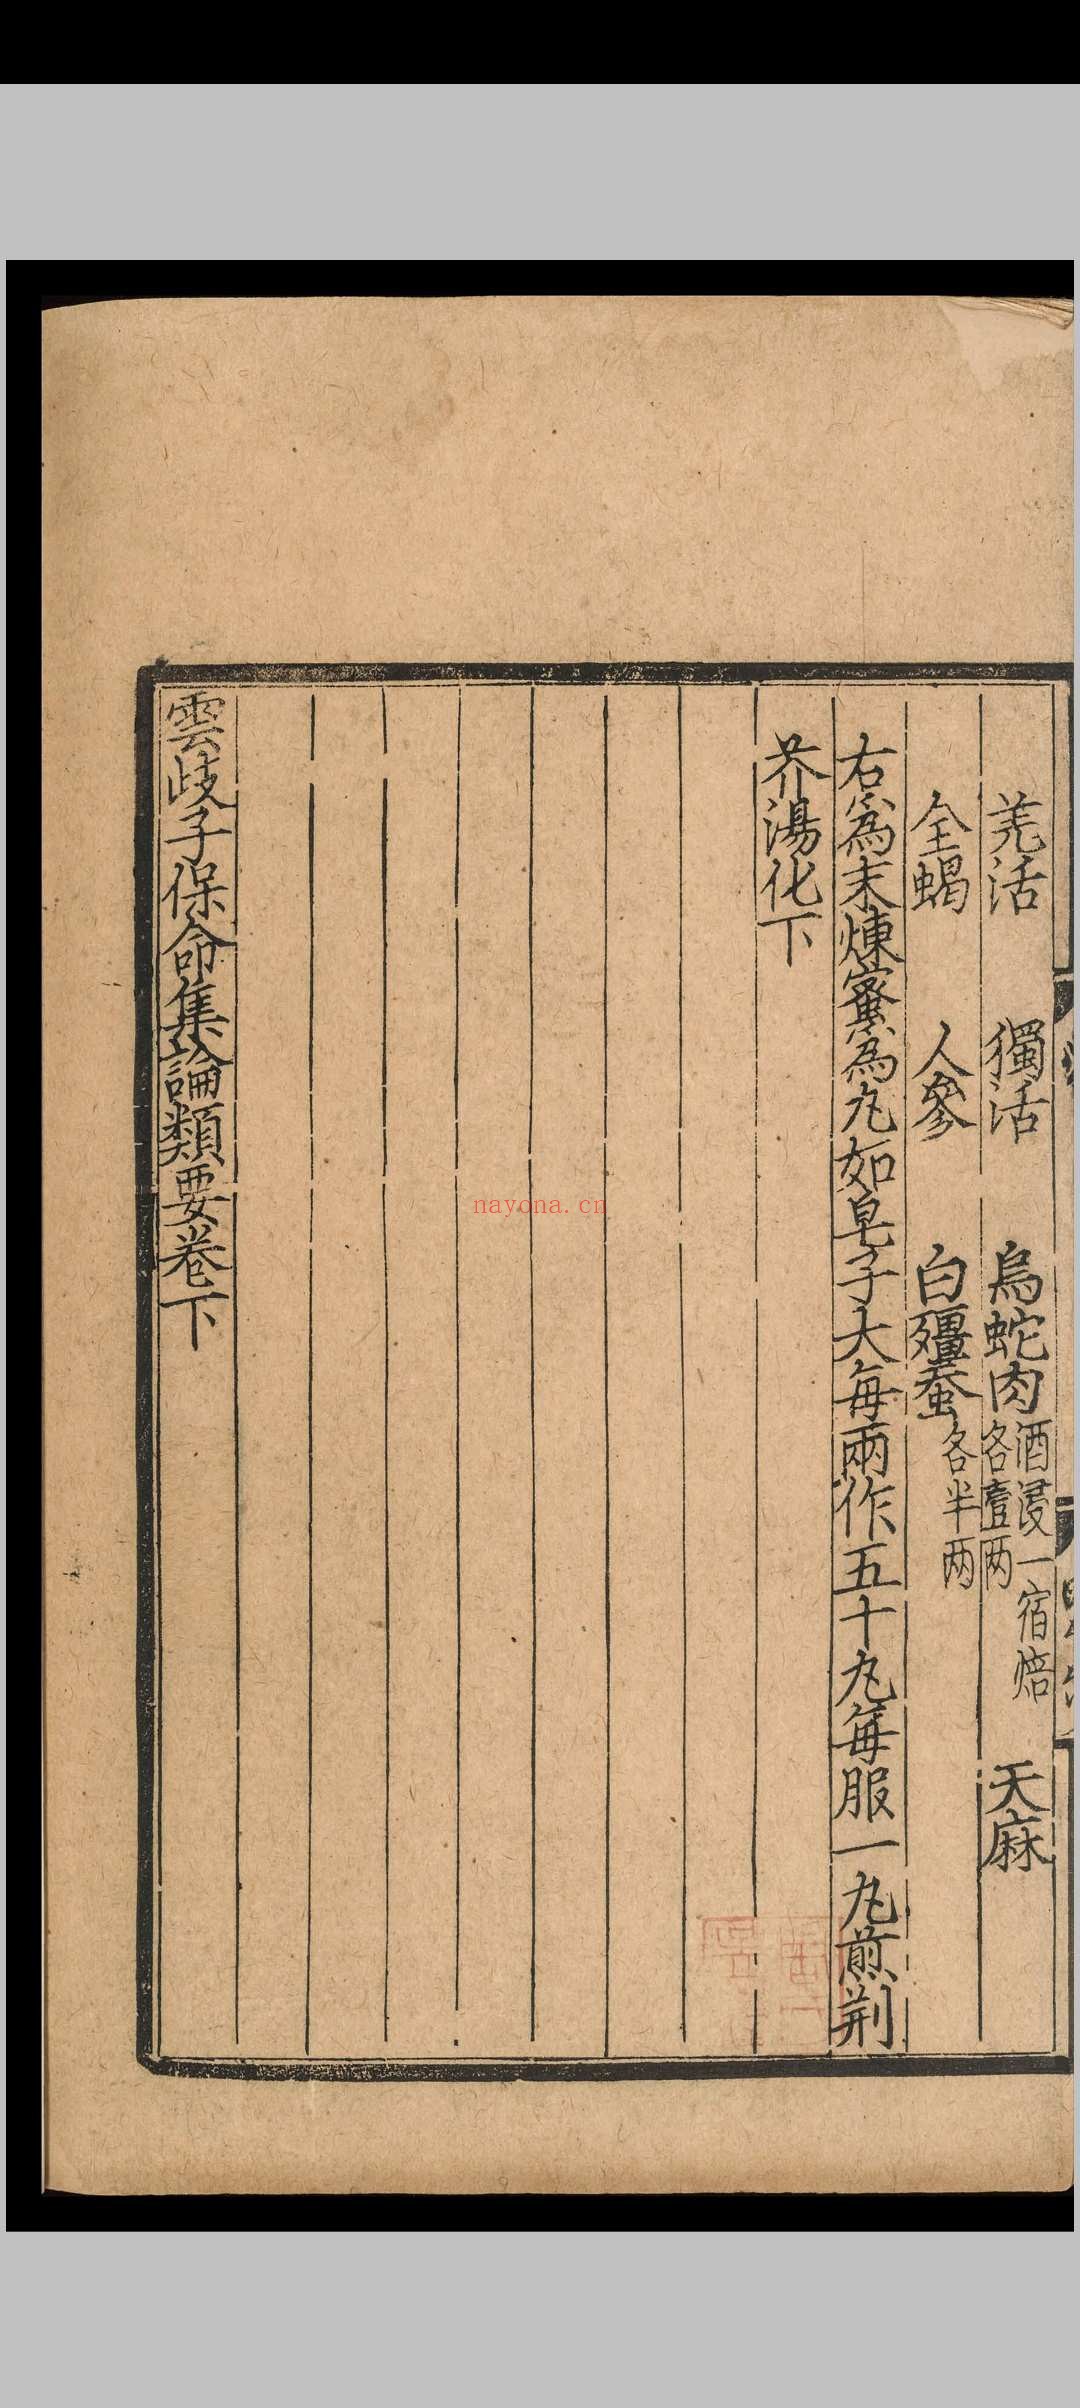 羌活　獨活　烏蛇肉酒浸一宿焙各壹两　天麻
全蝎　人參　白殭蚕各半两
右為末煉蜜為丸如皂子大每兩作五十丸每服一丸煎荆
芥湯化下
雲歧子保命集論類要卷下
nayona.cn